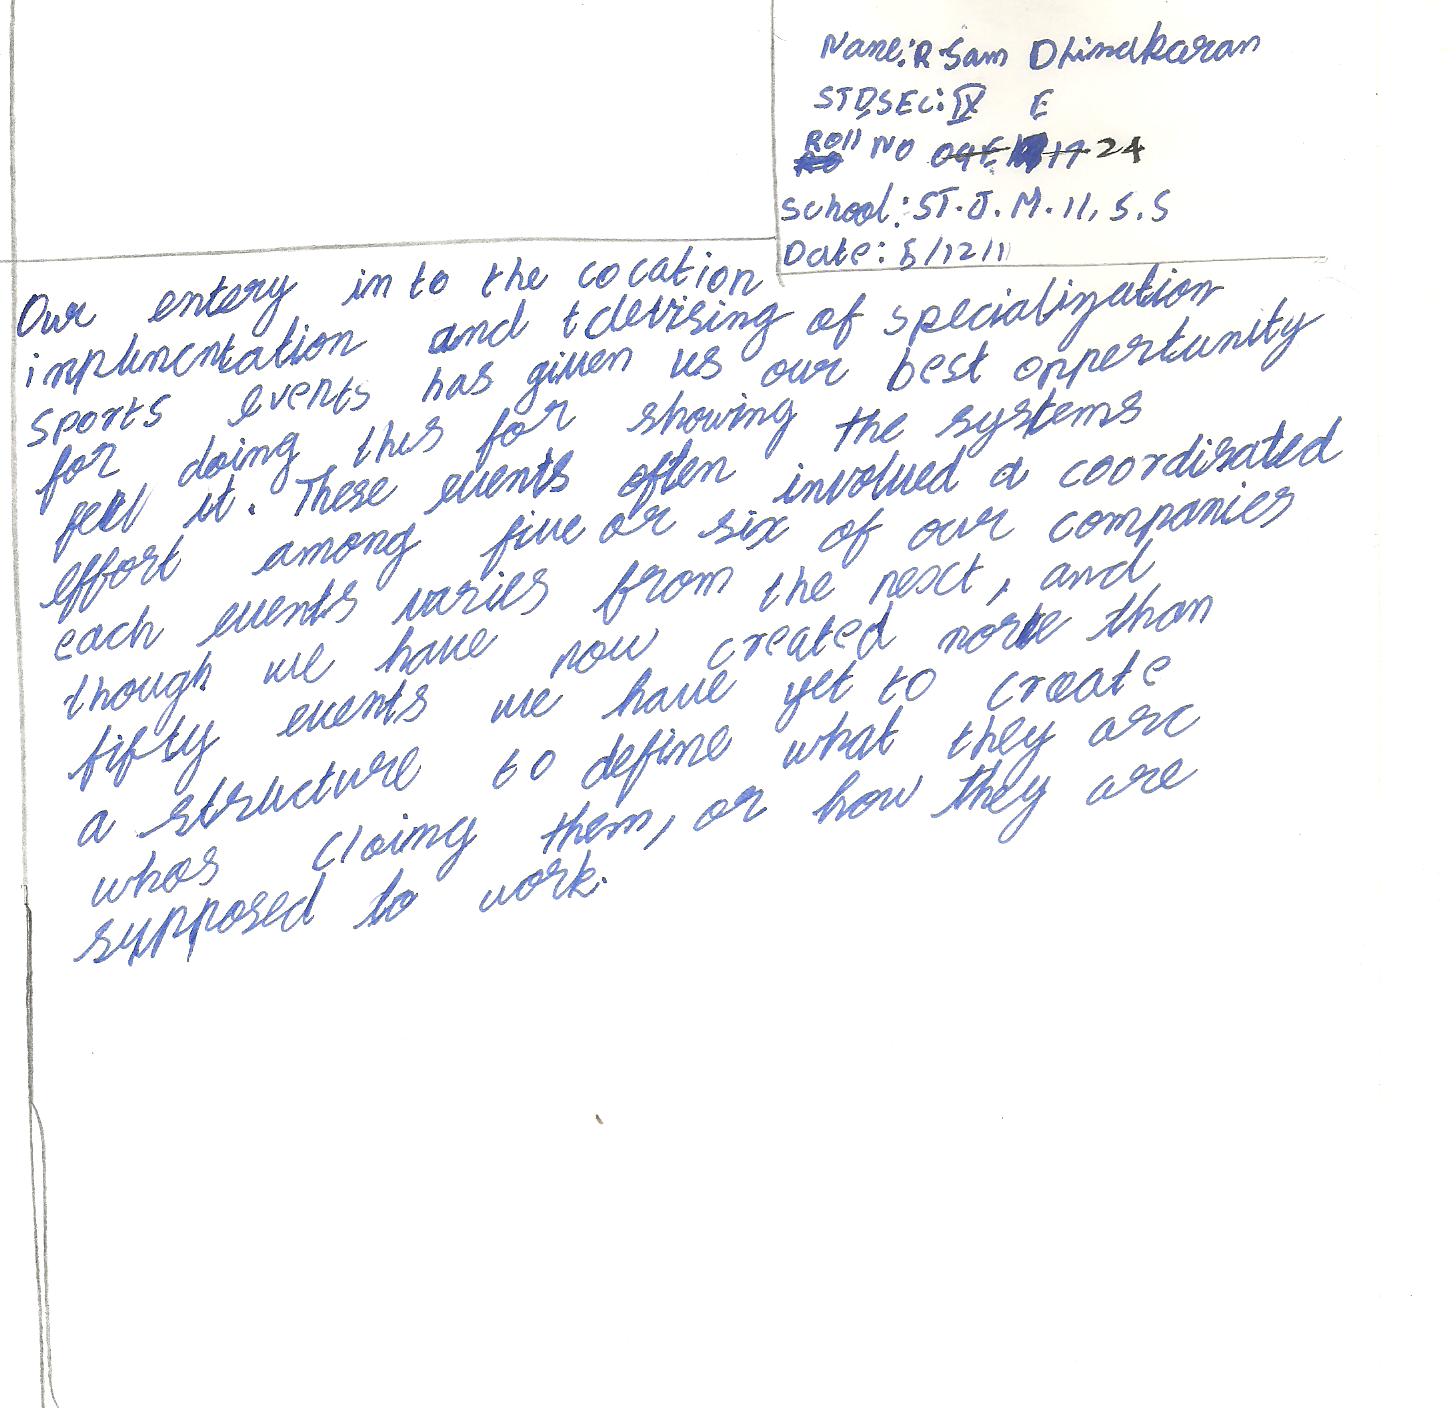 Name: R. Sam Dhinakaran
STD,SEC: IX E
Roll NO 24
School: ST. J. M. H. S. S
Date: 5/12/11
Our entery in to the cocation
inplimentation and tdevising of specialization
sports events has given us our best oppertunity
for doing this for showing the systems
feel it. These events often involved a coordisated
effort among five or six of our companies
each events varies from the next, and
though we have now created more than
fifty events we have yet to create
a structure to define what they are
whos cloing them, or how they are
supposed to work.